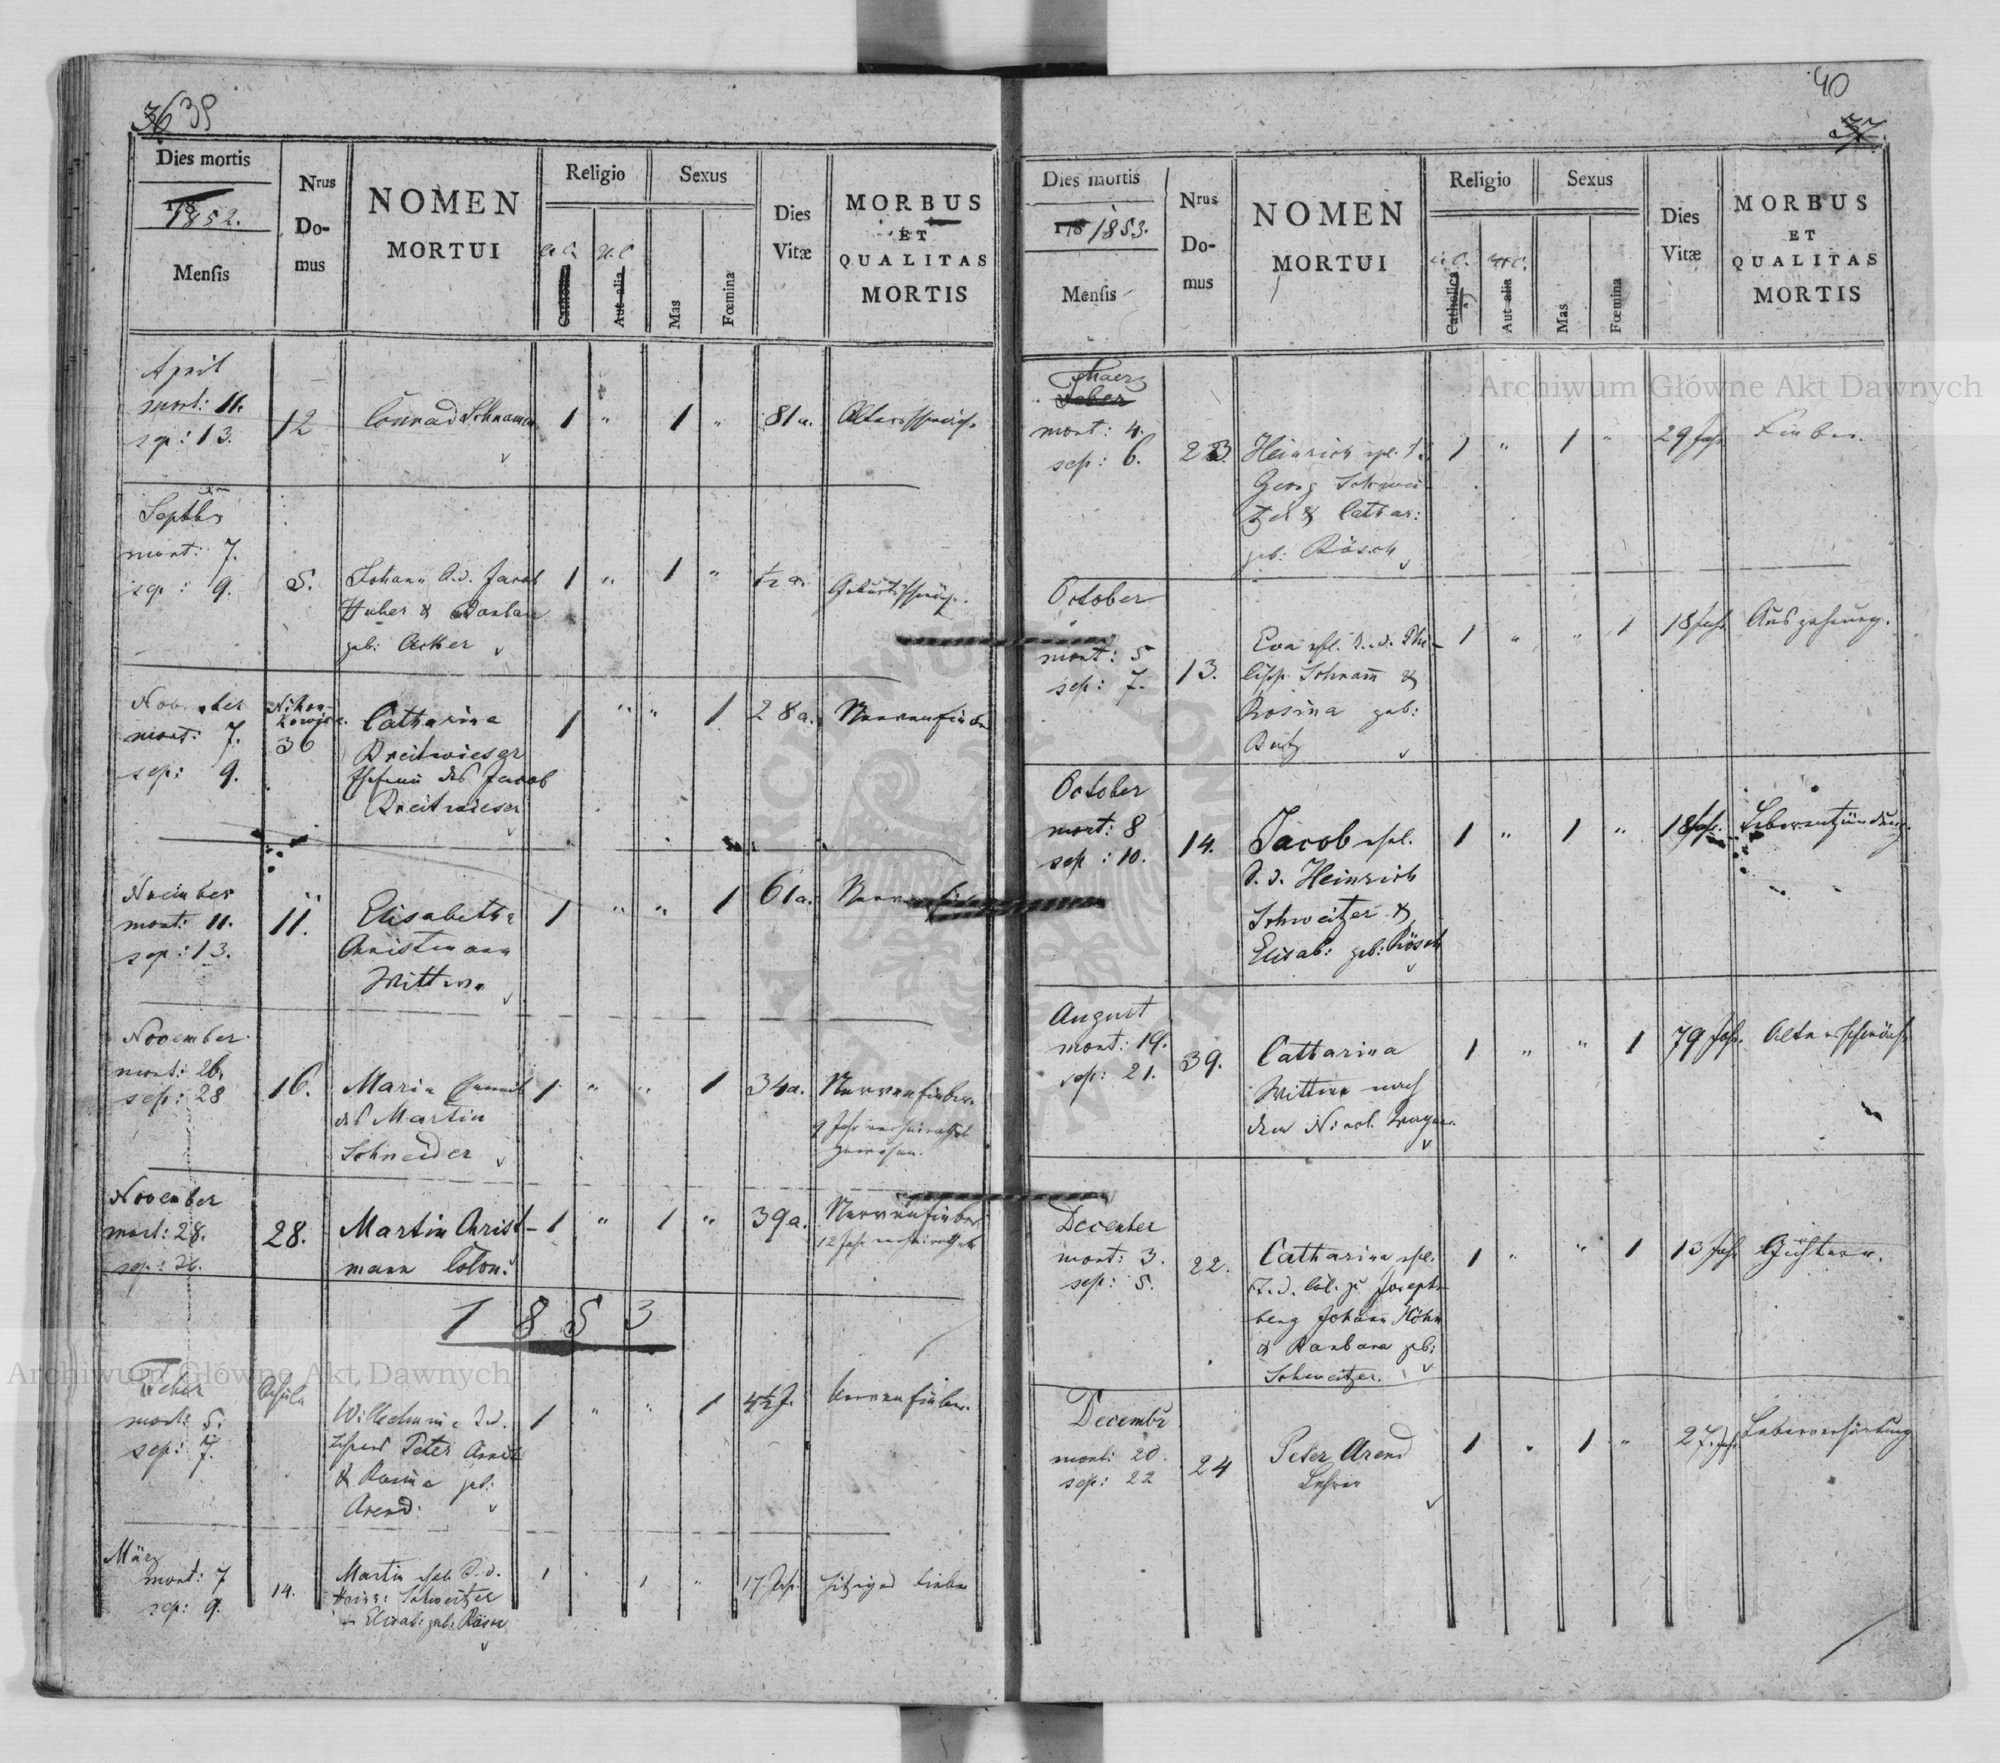 36 39
Dies mortis
1852.
Mensis
Nrus
Do-
mus
NOMEN
MORTUI
Religio
A.C.
H.C.
Catholica
Aut alia
Sexus
Mas
Fœmina
Dies
Vitæ
MORBUS
ET
QUALITAS
MORTIS
April
mort: 11.
sep: 13.
12
Conrad Schnamm
1 " 1 "
81 a.
Altersschwäche
Septbr
mort: 7.
sep: 9.
5.
Johann S.d. Jacob
Huber & Barbara
geb: Acker
1 " 1 "
½ a.
November
mort: 7.
sep: 9.
36
Catharina
Breitwieser
Ehefrau des Jacob
Breitwieser
1 " " 1
28 a.
Nervenfieber
November
mort: 11.
sep: 13.
11.
Elisabetha
Christmann
Wittwe
1 " " 1
61 a.
November
mort: 26.
sep: 28
16.
Maria
des Martin
Schneider
1 " " 1
34 a.
Nervenfieber
9 Jahr verheirathet
gewesen.
November
mort: 28.
sep:
28.
Martin Christ-
mann Colon:
1 " 1 "
39 a.
Nervenfieber
12 Jahr verheirathet
1853
Feber
mort: 5.
sep: 7.
Schule
Wilhelmine T.d.
Peter
& Rosina geb:
Arend.
1 " " 1
4½ J.
Nervenfieber.
März
mort: 7
sep: 9.
14.
Martin ehel. S.d.
Heinr: Schweitzer
Elisab: geb: Rösch
1 " 1 "
17 Jah.
hitziges Fieber
40
37.
Dies mortis
18 1853.
Mensis
Nrus
Do-
mus
NOMEN
MORTUI
Religio
A.C.
H.C.
Catholica
Aut alia
Sexus
Mas
Fœmina
Dies
Vitæ
MORBUS
ET
QUALITAS
MORTIS
mort: 4.
sep: 6.
Heinrich ehel. S.
Georg Schwei-
tzer & Cathar:
geb: Rösch
1 " 1 "
29 Jah.
Fieber.
October
mort: 5
sep: 7.
13.
Eva ehel. T.d. Phi-
lipp Schnam̄ &
Rosina geb:
Butz
1 " " 1
18 Jah.
Auszehrung.
October
mort: 8
sep: 10.
14.
Jacob ehel.
S.d. Heinrich
Schweitzer &
Elisab: geb: Rösch
1 " 1 "
18 Jah.
Leberentzündung.
August
mort: 19.
sep: 21.
39.
Catharina
Wittwe nach
dem Nicol.
1 " " 1
79 Jah.
Altersschwäche
December
mort: 3.
sep: 5.
22.
Catharina ehel.
T.d. Col. zu Josephs-
berg Johann Höhn
& Barbara geb:
Schweitzer.
1 " " 1
13 Jah.
December
mort: 20.
sep: 22
24
Peter Arend
Lehrer
1 " 1 "
27 Jah.
Leberverhärtung
Archiwum Główne Akt Dawnych
Archiwum Główne Akt Dawnych